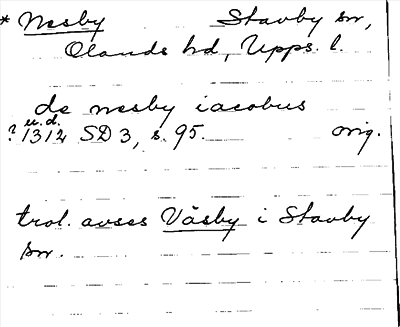 * Nesby Stavby sn,
Olands hd, Upps. l.
de nesby iacobus
u.d.
? 1312 SD 3, s. 95. orig.
trol. avses Väsby i Stavby
sn.